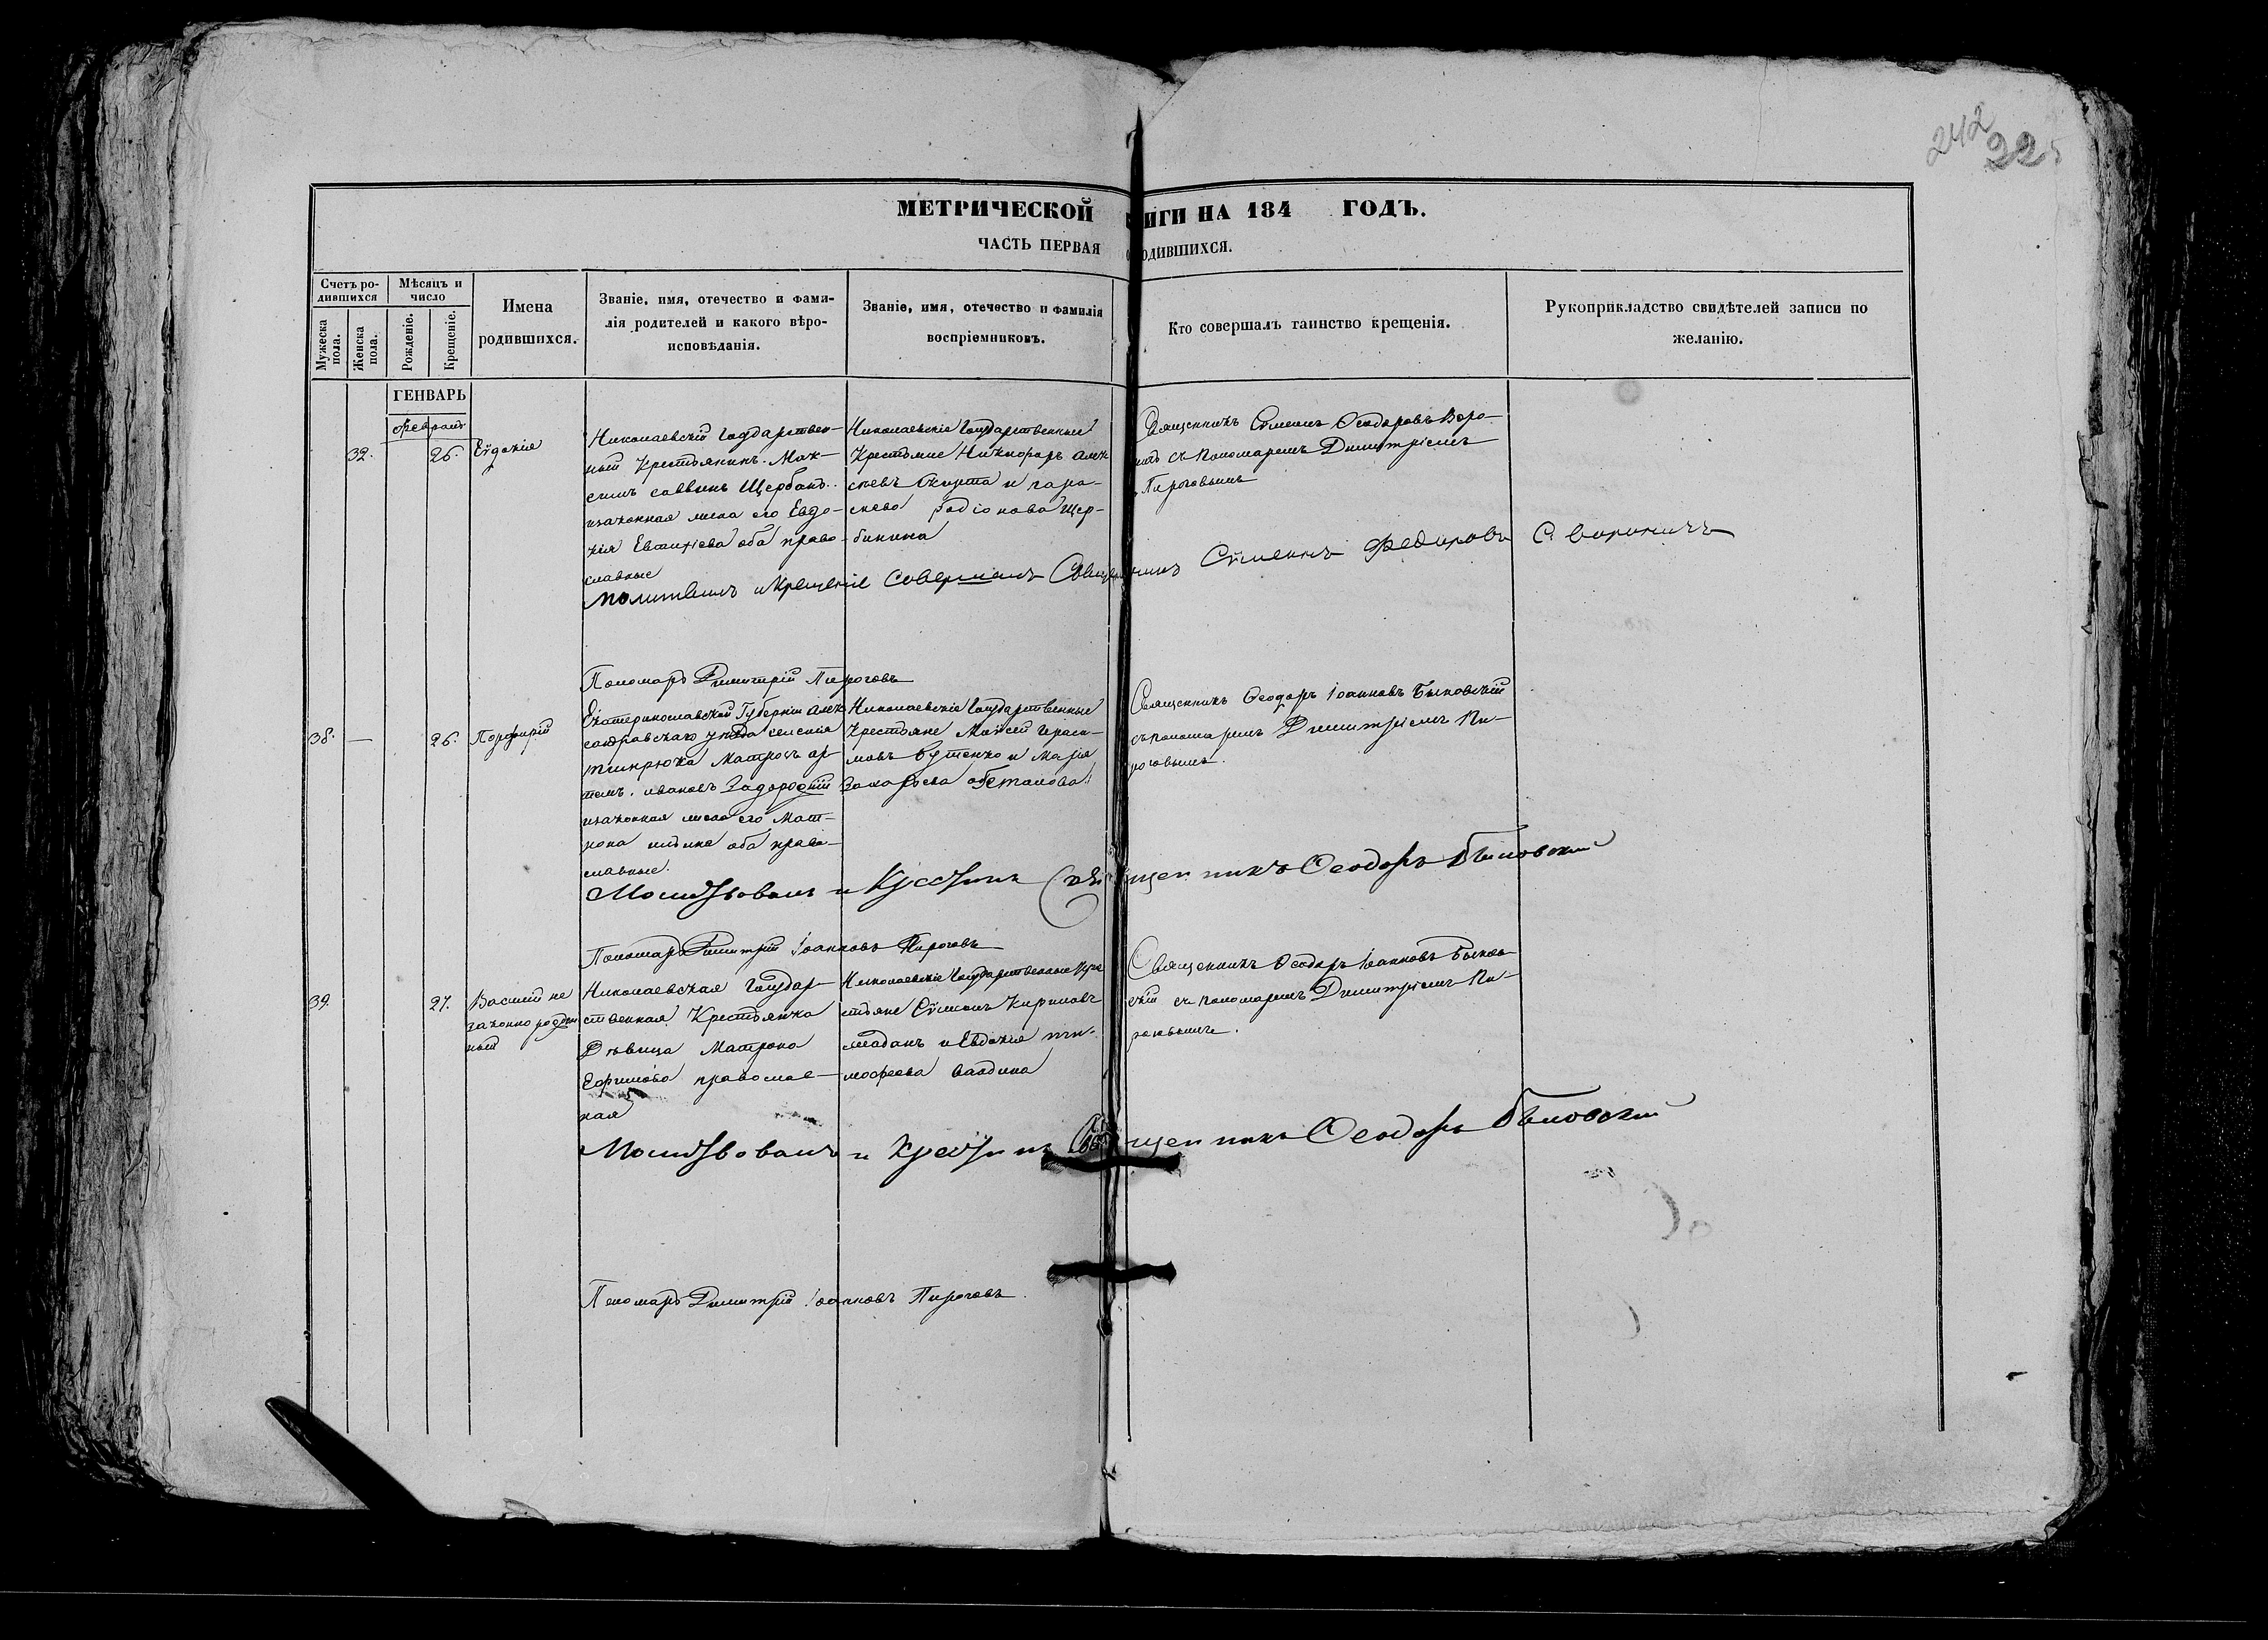 242
225
МЕТРИЧЕСКОЙ ИГИ НА 184 ГОДЪ.
ЧАСТЬ ПЕРВАЯ О ОДИВШИХСЯ.
Счетъ ро-
дившихся
Мужеска пола.
Женска пола.
Мѣсяцъ и
число
Рожденіе.
Крещеніе.
Имена
родившихся.
Званіе, имя, отечество и фами-
лія родителей и какого вѣро-
исповѣданія.
Званіе, имя, отечество и фамилія
воспріемниковъ.
Кто совершалъ таинство крещенія.
Рукоприкладство свидѣтелей записи по
желанію.
ГЕНВАРЬ
февраль
32.
26.
Евдокія
Николаевскій Государствен-
ный Крестьянинъ Мак-
симъ Саввинъ Щербань
изаконная жена его Евдо-
кія Евтихіева оба право-
славные
Николаевскіе Государственные
Крестьяне Никифоръ Алек
сѣевъ и пара-
скева Родіонова Щер-
бинина
Священникъ Сѵмеонъ Ѳеодоровъ Воро-
ничъ съ Пономаремъ Димитріемъ
Пироговымъ
Молитвилъ и Крещеніе Совершалъ Священникъ Сѵмеонъ Федоровъ Вороничъ
Пономарь Димитрій Пироговъ
38.
—
26.
Порфирій
Екатеринославской Губерніи Алек
сандровскаго уѣзда селенія
матросъ ар-
темъ ивановъ Задорожній
изаконная жена его Мат-
рона оба право-
славные.
Николаевскіе Государственные
Крестьяне Моѵсей Гераси-
мовъ Бутенко и Марія
Захарьева
Священникъ Ѳеодоръ Іоанновъ Быковскій
съ пономаремъ Димитріемъ Пи-
роговымъ.
Молитвовалъ и Крестилъ Священникъ Ѳеодоръ Быковскій
Пономарь Димитрій Іоанновъ Пироговъ
39.
27.
Василій не
законно рожден
ный
Николаевская Государ-
ственная Крестьянка
Дѣвица Матрона
Ефимова православ-
ная
Николаевскіе Государственные Кре
стьяне Сѵмеонъ Кириловъ
и Евдокія Ти-
мофеева
Священникъ Ѳеодоръ Іоанновъ Быков-
скій съ пономаремъ Димитріемъ Пи-
роговымъ.
Молитвовалъ и Крестилъ Священникъ Ѳеодоръ Быковскій
Пономарь Димитрій Іоанновъ Пироговъ.